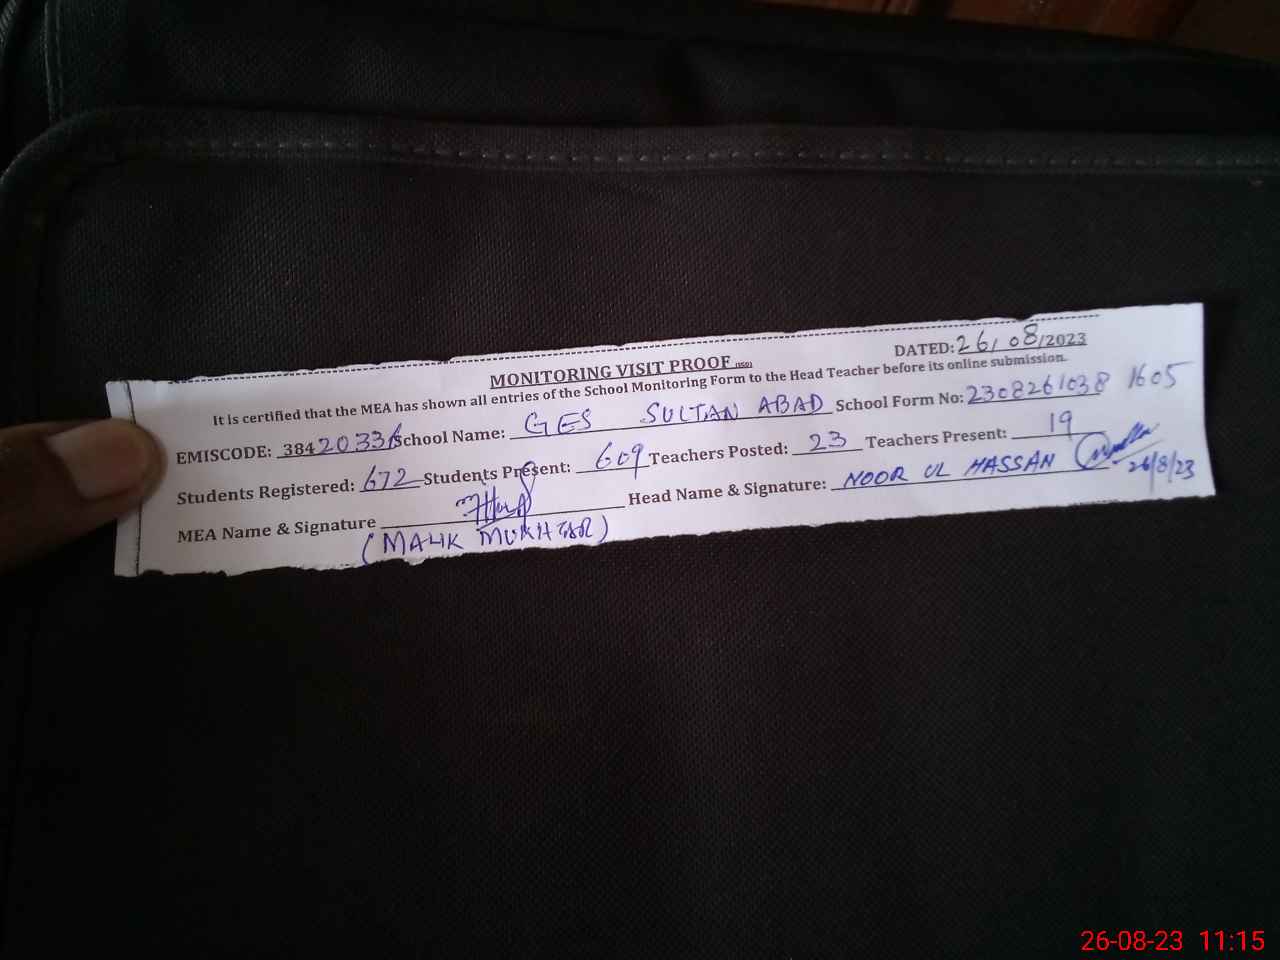 MONITORING VISIT PROOF
DATED: 26/08/2023
It is certified that the MEA has shown all entries of the School Monitoring Form to the Head Teacher before its online submission.
EMISCODE: 38420336 School Name: GES SULTAN ABAD School Form No: 2308261038 1605
Students Registered: 672 Students Present: 609 Teachers Posted: 23 Teachers Present: 19
MEA Name & Signature Head Name & Signature: NOOR UL HASSAN 26/8/23
(MALIK MUKHTAR)
26-08-23 11:15